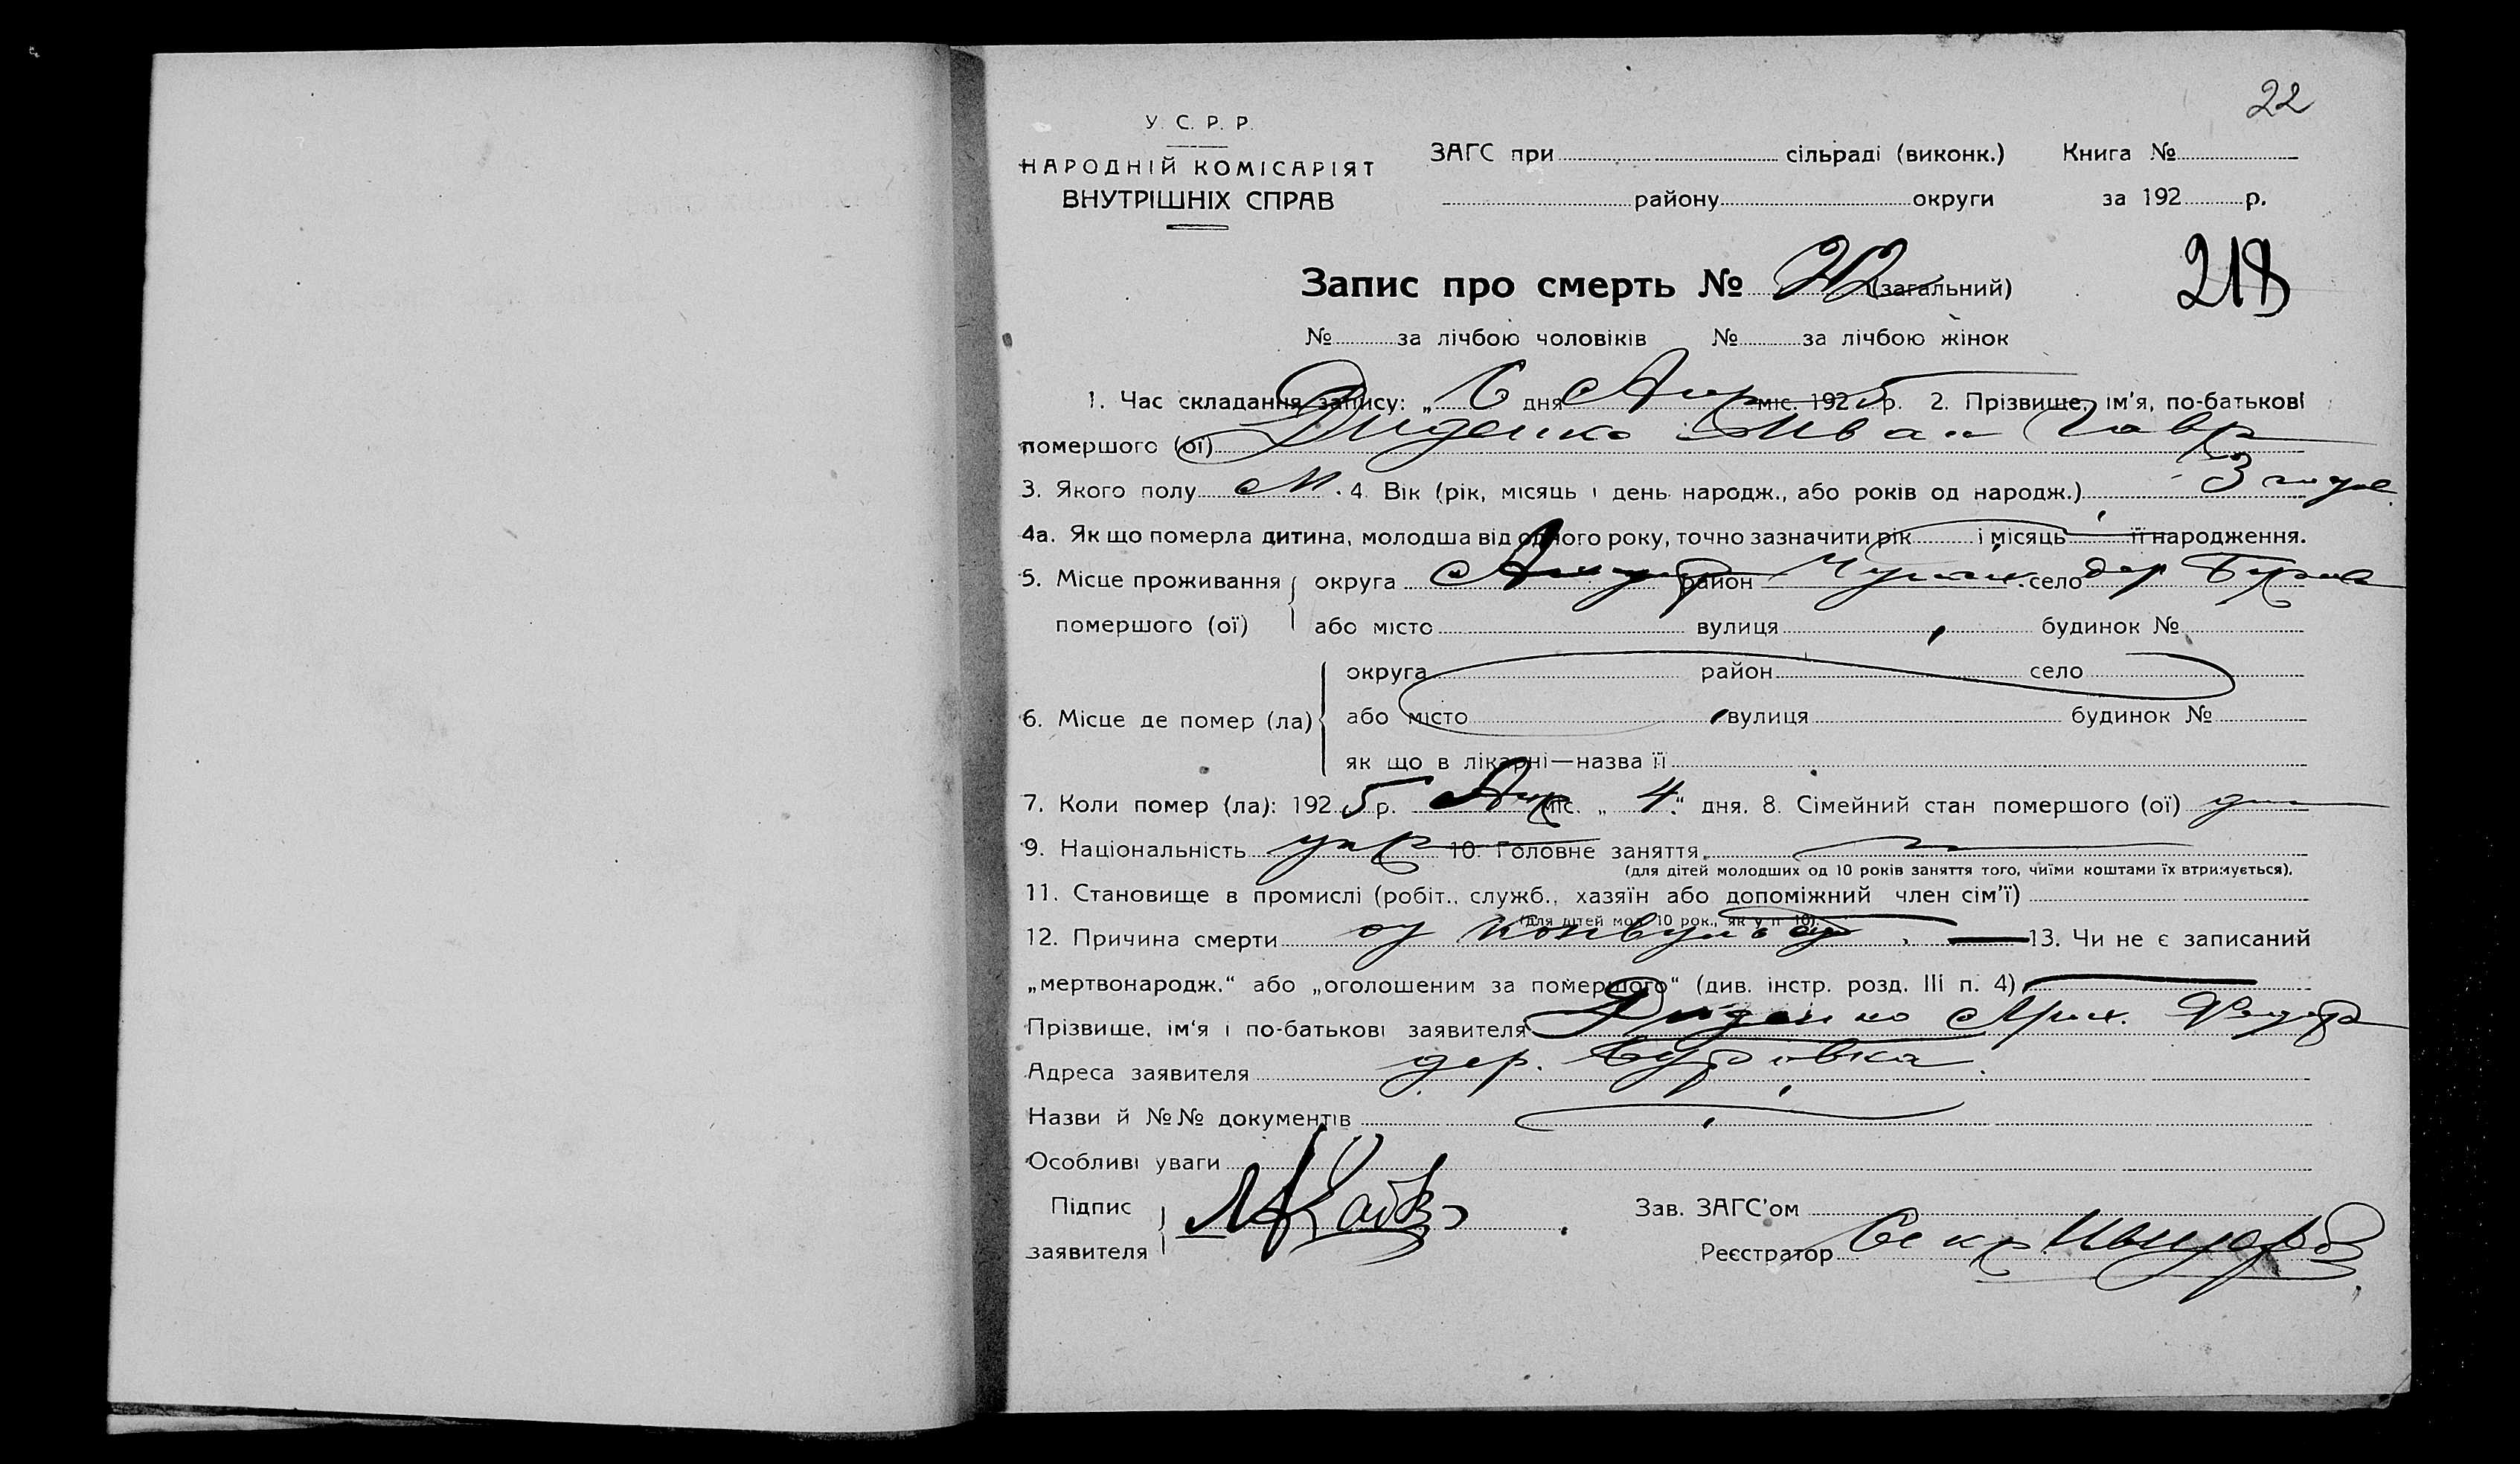 22
У. С. Р. Р.
НАРОДНІЙ КОМІСАРІЯТ
ВНУТРІШНІХ СПРАВ
ЗАГС при сільраді (виконк.) Книга №
району округи за 192 р.
Запис про смерть № 22 (загальний) 218
№ за лічбою чоловіків № за лічбою жінок
1. Час складання запису: „ 6 дня Апр міс. 1925 р. 2. Прізвище, ім'я, по-батькові
помершого (ої) Диденко Иван Гавр
3. Якого полу М. 4. Вік (рік, місяць і день народж., або років од народж.) 3 года
4а. Як що померла дитина, молодша від одного року, точно зазначити рік і місяць її народження.
5. Місце проживання округа район село дер
помершого (ої) або місто вулиця будинок №
округа район село
6. Місце де помер (ла) або місто вулиця будинок №
як що в лікарні—назва її
7. Коли помер (ла): 1925 р. Апр міс. „ 4 “ дня. 8. Сімейний стан помершого (ої)
9. Національність укр 10. Головне заняття
(для дітей молодших од 10 років заняття того, чиїми коштами їх втримується).
11. Становище в промислі (робіт., служб., хазяїн або допоміжний член сім'ї)
(для дітей мол. 10 рок., як у п. 10).
12. Причина смерти от 13. Чи не є записаний
„мертвонародж.“ або „оголошеним за помершого“ (див. інстр. розд. III п. 4)
Прізвище, ім'я і по-батькові заявителя Диденко
Адреса заявителя дер.
Назви й №№ документів
Особливі уваги
Підпис Зав. ЗАГС'ом
заявителя Реєстратор Секр